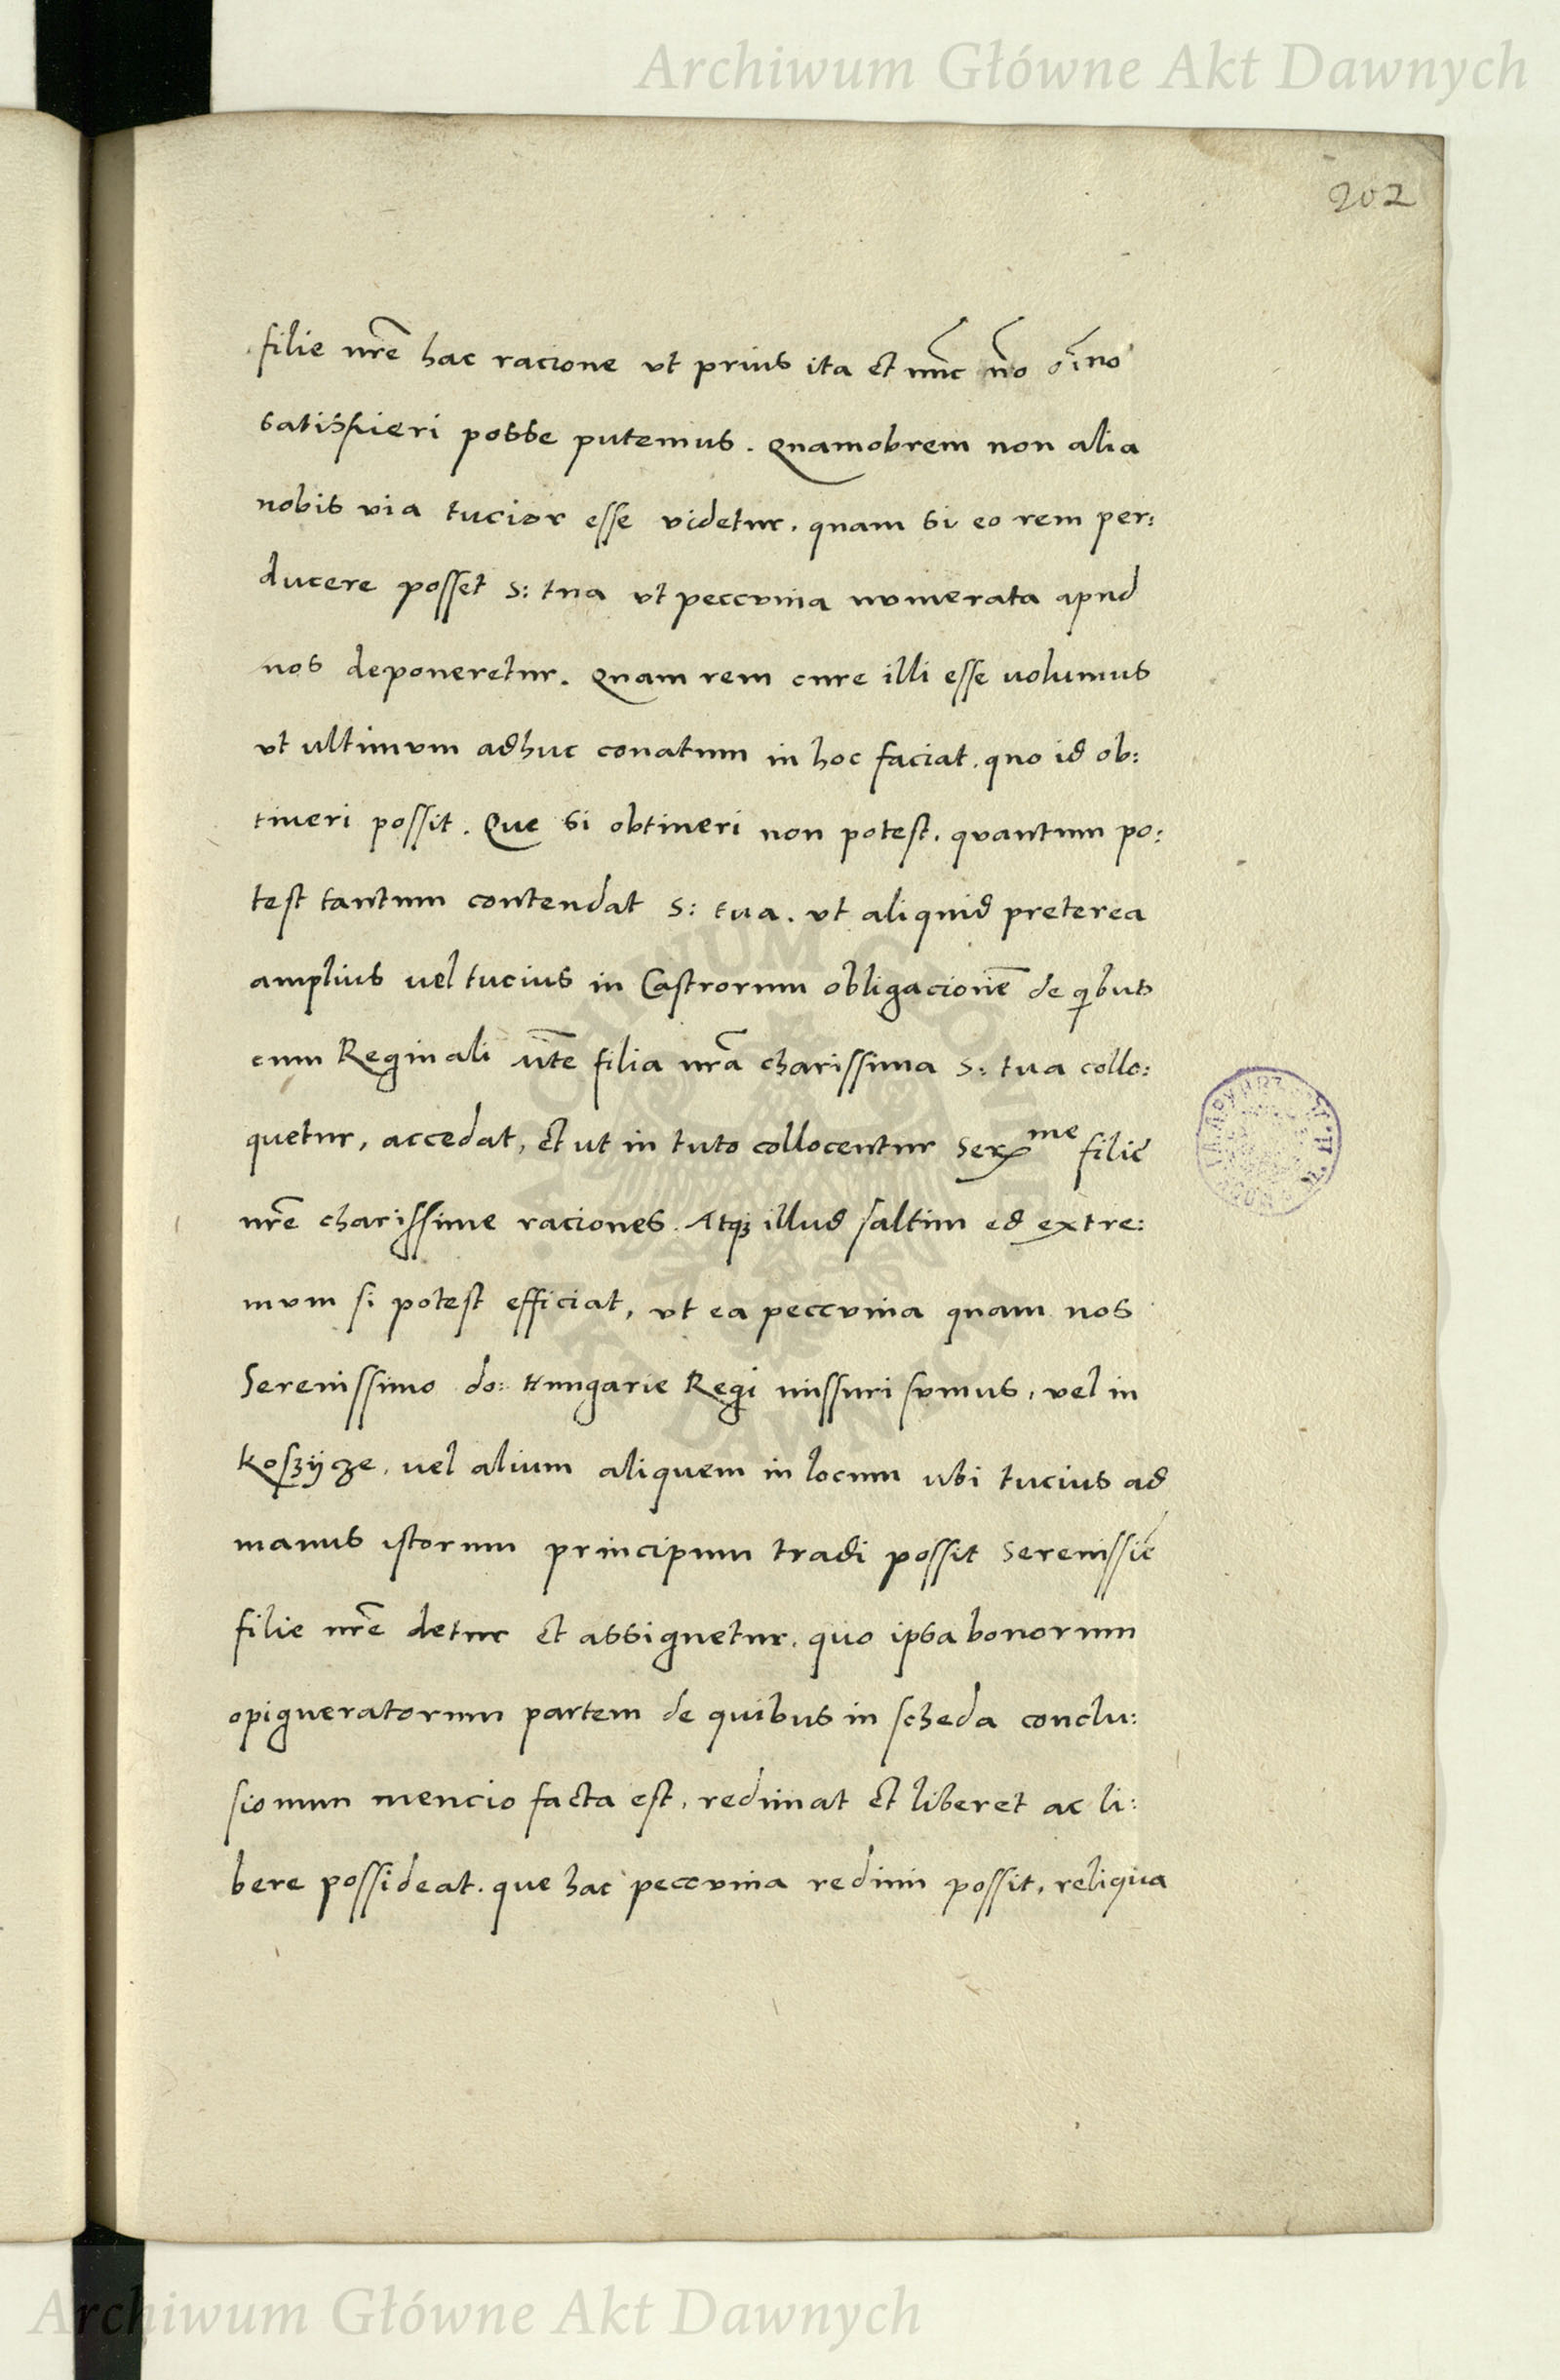 Archiwum Główne Akt Dawnych
202
filie nr̃e hac racione vt prius ita et nũc nõ oĩno
satisfieri posse putemus. Quamobrem non alia
nobis via tucior esse videtur. quam si eo rem per:
ducere posset S: tua vt peccunia numerata apud
nos deponeretur. Quam rem cure illi esse uolumus
vt ultimum adhuc conatum in hoc faciat. quo id ob:
tineri possit. Que si obtineri non potest. quantum po:
test tantum contendat S: tua. vt aliquid preterea
amplius uel tucius in Castrorum obligacionẽ de qibus
cum Reginali vr̃te filia nr̃a charissima S: tua collo:
quetur, accedat, et ut in tuto collocentur Serme filie
nr̃e charissime raciones. Atqꝫ illud saltim ed extre:
mum si potest efficiat, vt ea peccunia quam nos
Serenissimo do: Hungarie Regi missuri sumus, vel in
Koszÿcze, vel alium aliquem in locum ubi tucius ad
manus istorum principum tradi possit Serenissiẽ
filie nr̃e detur et assignetur. quo ipsa bonorum
opigneratorum partem de quibus in scheda conclu:
sionum mencio facta est, redimat et liberet ac li:
bere possideat. que hac peccunia redimi possit, reliqua
Archiwum Główne Akt Dawnych